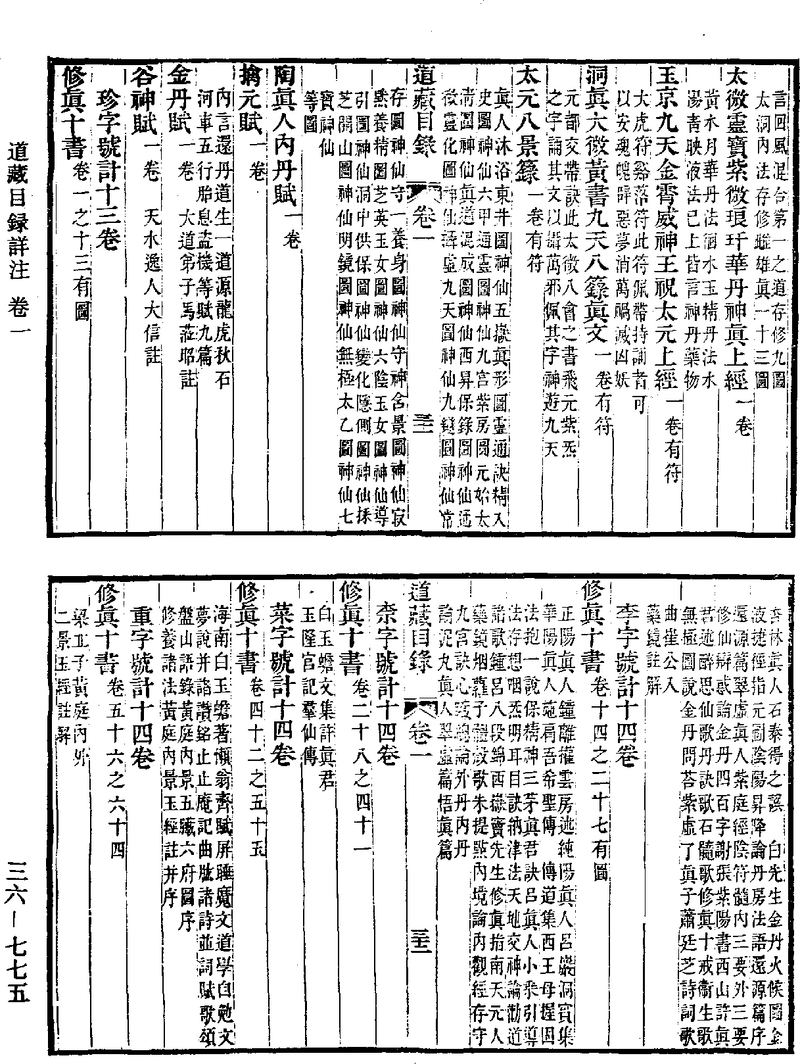 言回風混合第一之道存修九圖
太洞內法存修雌雄眞一十三圖
太微靈寶紫微琅玕華丹神眞上經 一卷
黃水月華丹法徊水玉精丹法水
陽青映液法已上皆言神丹藥物
玉京九天金霄威神王祝太元上經 一卷有符
大虎符豁落符此符佩帶持誦者可
以安魂魄辟惡夢消萬禍滅凶妖
洞眞太微黃書九天八籙眞文 一卷有符
元都交帶訣此太微八會之書飛元紫炁
之字誦其文以緝萬邪佩其字神遊九天
太元八景籙 一卷有符
眞人沐浴東井圖神仙五嶽眞形圖靈通訣精入
史圖神仙六甲通靈圖神仙九宮紫房圖元始太
清圖神仙眞道混成圖神仙西昇保錄圖神仙通
微靈化圖神仙耩虛九天圖神仙九錢圖神仙常
道藏目錄 卷一 三二
存圖神仙守一養身圖神仙守神舍景圖神仙寂
默養精圖芝英玉女圖神仙六陰玉女圖神仙導
引圖神仙洞中供保圖神仙變化隱側圖神仙採
芝開山圖神仙明鏡圖神仙無極太乙圖神仙七
寶神仙
等圖
陶眞人內丹賦 一卷
擒元賦 一卷
內言還丹道生一道源龍虎秋石
河車五行胎息盜機等賦九篇
金丹賦 一卷 大道弟子馬蒞昭註
谷神賦 一卷 天水逸人大信註
珍字號計十三卷
修眞十書 卷一之十三有圖
杏林眞人石泰得之譔 白先生金丹火候圖金
液捷徑指元圖陰陽昇降論丹房法語還源篇序
還源篇翠虛眞人紫庭經陰符髓內三要外三要
修仙辯惑論金丹四百字謝張紫陽書西山許眞
君述醉思仙歌丹訣歌石髓歌修眞十戒衞生歌
無極圖說金丹問荅紫虛了眞子蕭廷芝詩詞歌
曲崔公入
藥鏡註解
李字號計十四卷
修眞十書 卷十四之二十七有圖
正陽眞人鍾離權雲房述純陽眞人呂巖洞賓集
華陽眞人施肩吾希聖傳 傳道集西王母握固
法抱一說保精神三茅眞君訣呂眞人小乘引導
法存想咽炁明耳目訣納津法天地交神論勸道
諸歌鍾呂八段錦西嶽寶先生修眞指南天元人
藥鏡烟蘿子體殼歌朱提點內境論內觀經存守
九宮訣心鏡總論外丹內丹
論記丸眞人翠虛篇悟眞篇
道藏目錄 卷一 三三
柰字號計十四卷
修眞十書 卷二十八之四十一
白玉蟾文集許眞君
玉隆宮記羣仙傳
菜字號計十四卷
修眞十書 卷四十二之五十五
海南白玉蟾著懶翁齋賦屏睡魔文道學自勉文
夢說幷諸讚銘止止庵記曲肱諸詩並詞賦歌頌
盤山語錄黃庭內景五臟六府圖序
修養諸法黃庭內景玉經註幷序
重字號計十四卷
修眞十書 卷五十六之六十四
梁丘子黃庭內外
二景玉經註解
道藏目録詳注 卷一
三六—七七五